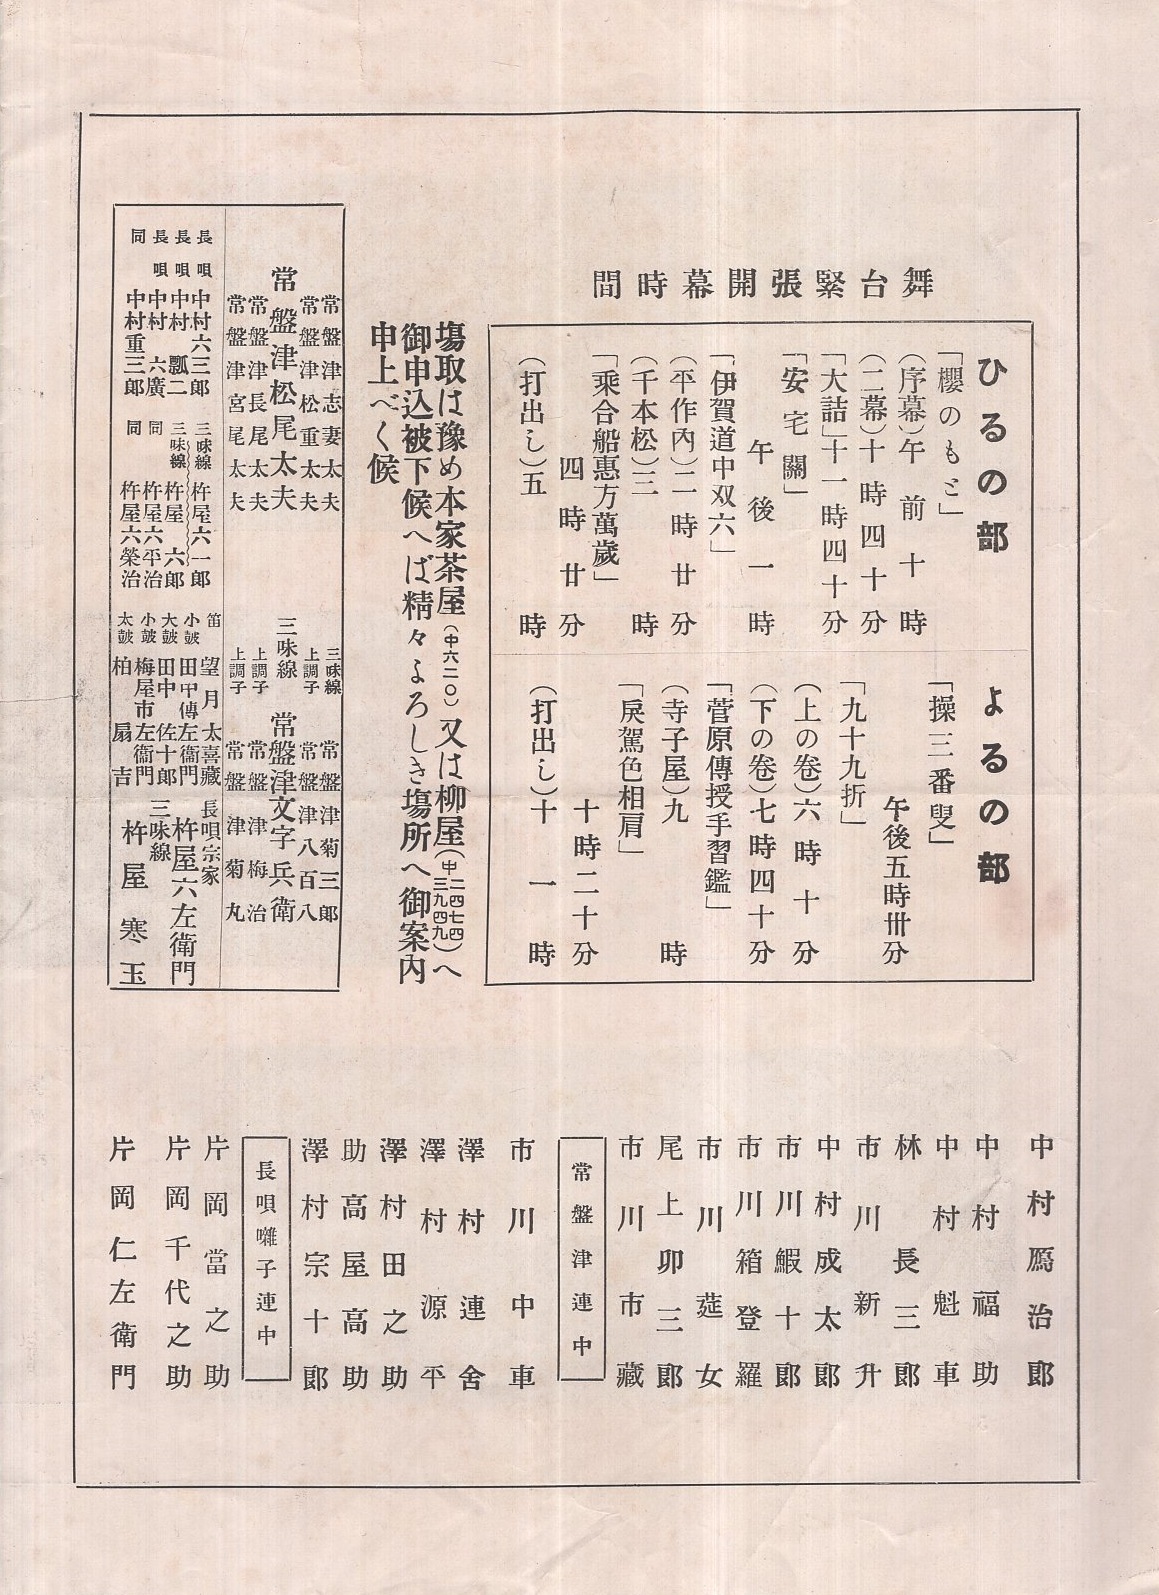 舞台緊張開幕時間
ひるの部
「櫻のもと」
（序幕）午前十時
（二幕）十時四十分
「大詰」十一時四十分
「安宅關」
午後一時
「伊賀道中双六」
（平作內）二時廿分
（千本松）三時
「乘合船惠方萬歲」
四時廿分
（打出し）五時
よるの部
「操三番叟」
午後五時卅分
「九十九折」
（上の卷）六時十分
（下の卷）七時四十分
「菅原傳授手習鑑」
（寺子屋）九時
「戾駕色相肩」
十時二十分
（打出し）十一時
塲取は豫め本家茶屋（中六二〇）又は柳屋（中二四七四三九四九）へ
御申込被下候へば精々よろしき塲所へ御案內
申上べく候
常盤津志妻太夫
常盤津松重太夫
常盤津松尾太夫
常盤津長尾太夫
常盤津宮尾太夫
三味線 常盤津菊三郎
上調子 常盤津八百八
三味線 常盤津文字兵衛
上調子 常盤津梅治
上調子 常盤津菊丸
長唄 中村六三郎
長唄 中村瓢二
長唄 中村六廣
同 中村重三郎
三味線 杵屋六一郎
三味線 杵屋六郎
同 杵屋六平治
同 杵屋六榮治
笛 望月太喜藏
小皷 田中傳左衞門
大皷 田中佐十郎
小皷 梅屋市左衞門
太皷 柏扇吉
長唄宗家 杵屋六左衛門
三味線 杵屋寒玉
中村鴈治郎
中村福助
中村魁車
林長三郎
市川新升
中村成太郎
市川鰕十郎
市川箱登羅
市川莚女
尾上卯三郎
市川市藏
常盤津連中
市川中車
澤村連舍
澤村源平
澤村田之助
助高屋高助
澤村宗十郎
長唄囃子連中
片岡當之助
片岡千代之助
片岡仁左衛門